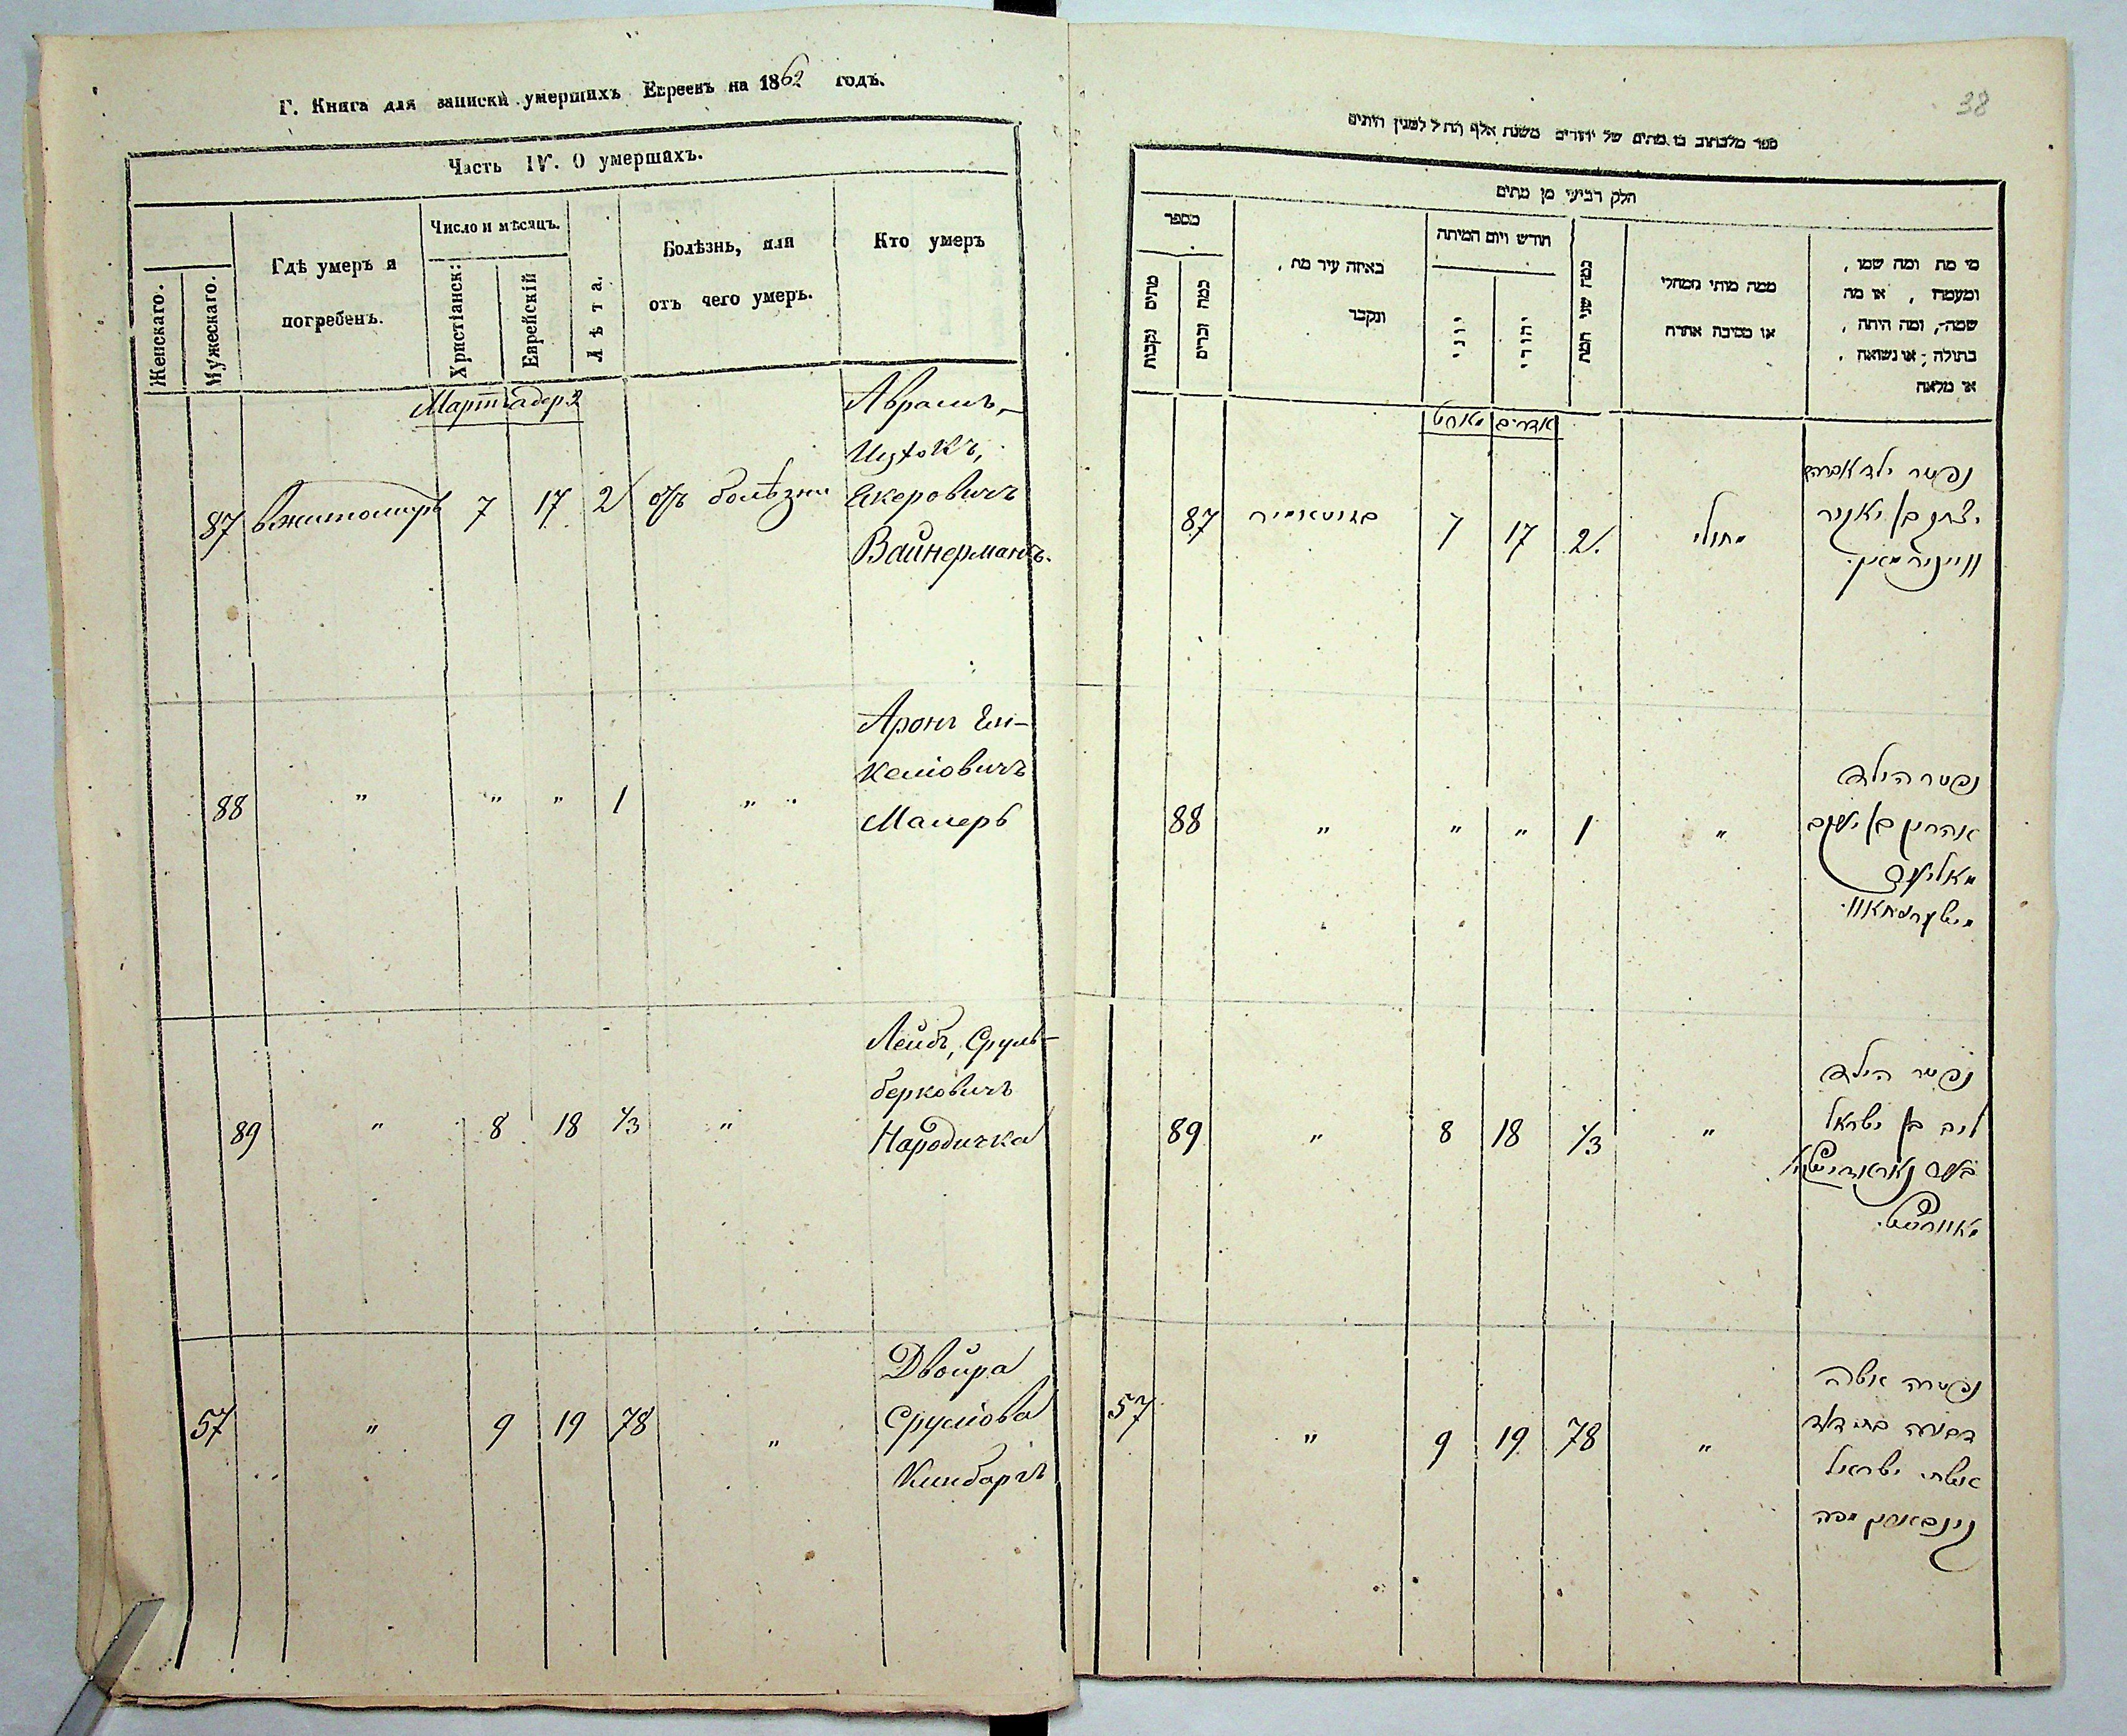 Г. Книга для записки умершихъ Евреевъ на 1862 годъ.
Часть IV. О умершахъ.
Женскаго.
Мужескаго.
Гдѣ умеръ и
погребенъ.
Число и мѣсяцъ.
Христіанск:
Еврейскій
Лѣта.
Болѣзнь, или
отъ чего умеръ.
Кто умеръ
Мартъ адер 2
87 вжитомирѣ 7 17 2 отъ болѣзни
Аврамъ,
Ицхокъ,
Екеровичъ
Вайнерманъ.
88 " " " 1 "
Аронъ Ян-
келіовичъ
Малеръ
89 " 8 18 1/3 "
Лейбъ, Сруль-
берковичъ
Народичка
57 " 9 19 78 "
Двойра
Сруліова
Кинбаргъ
38
ספר מלכתוב בו מתים של יהודים משנת אלף התל למנין היונים
חלק רביעי מן מתים
מספר
מתים נקבות
כמה זכרים
באיזה עיר מת,
ונקבר
חודש ויום המיתה
יוני
יהודי
כמה שני המת
ממה מותי ממחלי
או מסיבה אחרת
מי מת ומה שמו,
ומעמדו, או מה
שמה, ומה היתה,
בתולה, או נשואה,
או מלאה
מארט אדר ב
87 בזיטאמיר 7 17 2. מחולי
נפטר ילד אברהם
יצחק בן יאקיר
וויינירמאן.
88 " " " 1 "
נפטר הילד
אהרון בן יעקב
מאליער
89 " 8 18 1/3 "
נפטר הילד
ליב בן ישראל
בער נאראדיטשקי
57 " 9 19 78 "
נפטרה אשה
דבורה בת דוד
אשת ישראל
קינבארג מפה